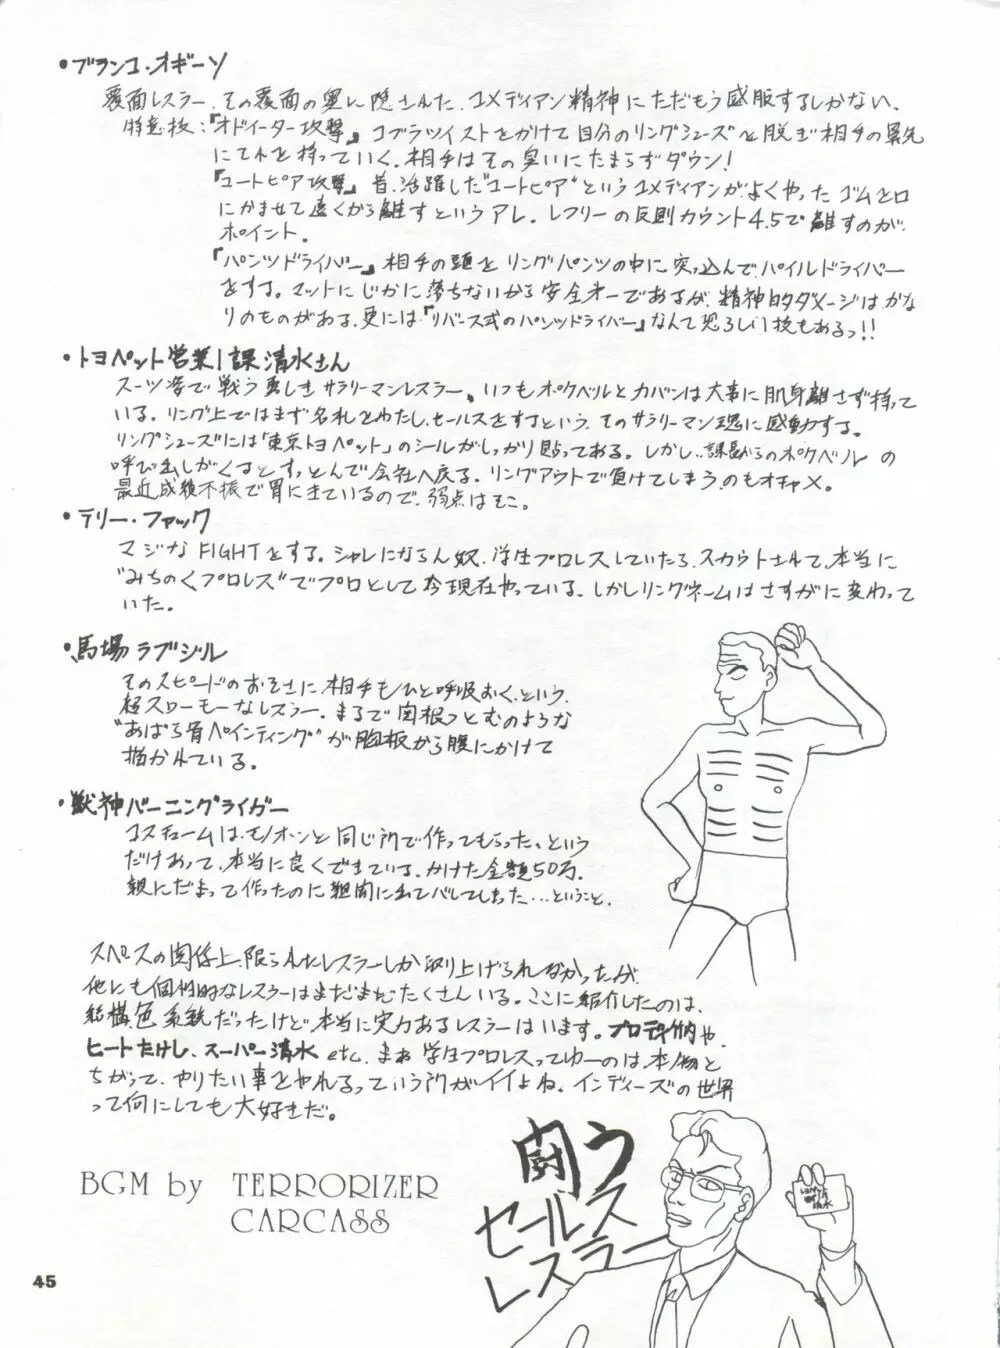 ・ブランコ・オギーソ
覆面レスラー。その覆面の奥に隠された、コメディアン精神にただもう感服するしかない。
得意技：『オドイーター攻撃』コブラツイストをかけて自分のリングシューズを脱ぎ相手の鼻先
にそれを持っていく。相手はその臭いにたまらずダウン！
『ユートピア攻撃』昔、活躍した"ユートピア"というコメディアンがよくやったゴムを口
にかませて遠くから離すというアレ。レフリーの反則カウント4.5で離すのが、
ポイント。
『パンツドライバー』相手の頭をリングパンツの中に突っ込んでパイルドライバー
をする。マットにじかに落ちないから安全オーであるが、精神的ダメージはかな
りのものがある、更には『リバース式のパンツドライバー』なんて恐ろしい技もあるっ!!
・トヨペット営業1課清水さん
スーツ姿で戦う勇しきサラリーマンレスラー、いつもポケベルとカバンは大事に肌身離さず持って
いる。リング上ではまず名札をわたし、セールスをするという、そのサラリーマン魂に感動する。
リングシューズには「東京トヨペット」のシールがしっかり貼ってある。しかし、課長からのポケベルの
呼び出しがくるとすっとんで会社へ戻る。リングアウトで負けてしまうのもオチャメ。
最近成績不振で胃にきているので、弱点はそこ。
・テリー・ファック
マジなFIGHTをする。シャレにならん奴、学生プロレスしていたら、スカウトされて、本当に
"みちのくプロレス"でプロとして今現在やっている。しかしリングネームはさすがに変わって
いた。
・馬場ラブジル
そのスピードのおそさに相手もひと呼吸おく、という、
超スローモーなレスラー。まるで関根つとむのような
"あばら骨ペインティング"が胸板から腹にかけて
描かれている。
・獣神バーニングライガー
コスチュームは、モノホーンと同じ所で作ってもらった、という
だけあって、本当に良くできている。かけた金額50万。
親にだまって作ったのに新聞に出てバレてしまった…ということ。
スペースの関係上、限られたレスラーしか取り上げられなかったが、
他にも個性的なレスラーはまだまだたくさんいる。ここに紹介したのは、
結構色系統だったけど、本当に実力あるレスラーはいます。プロディ竹内や、
ヒートたけし、スーパー清水 etc. まぁ学生プロレスってゆーのは、本物と
ちがって、やりたい事をやれるっていう所がイイよね。インディーズの世界
って何にしても大好きだ。
BGM by TERRORIZER
CARCASS
闘う
セールス
レスラー
トヨペット
清水
45